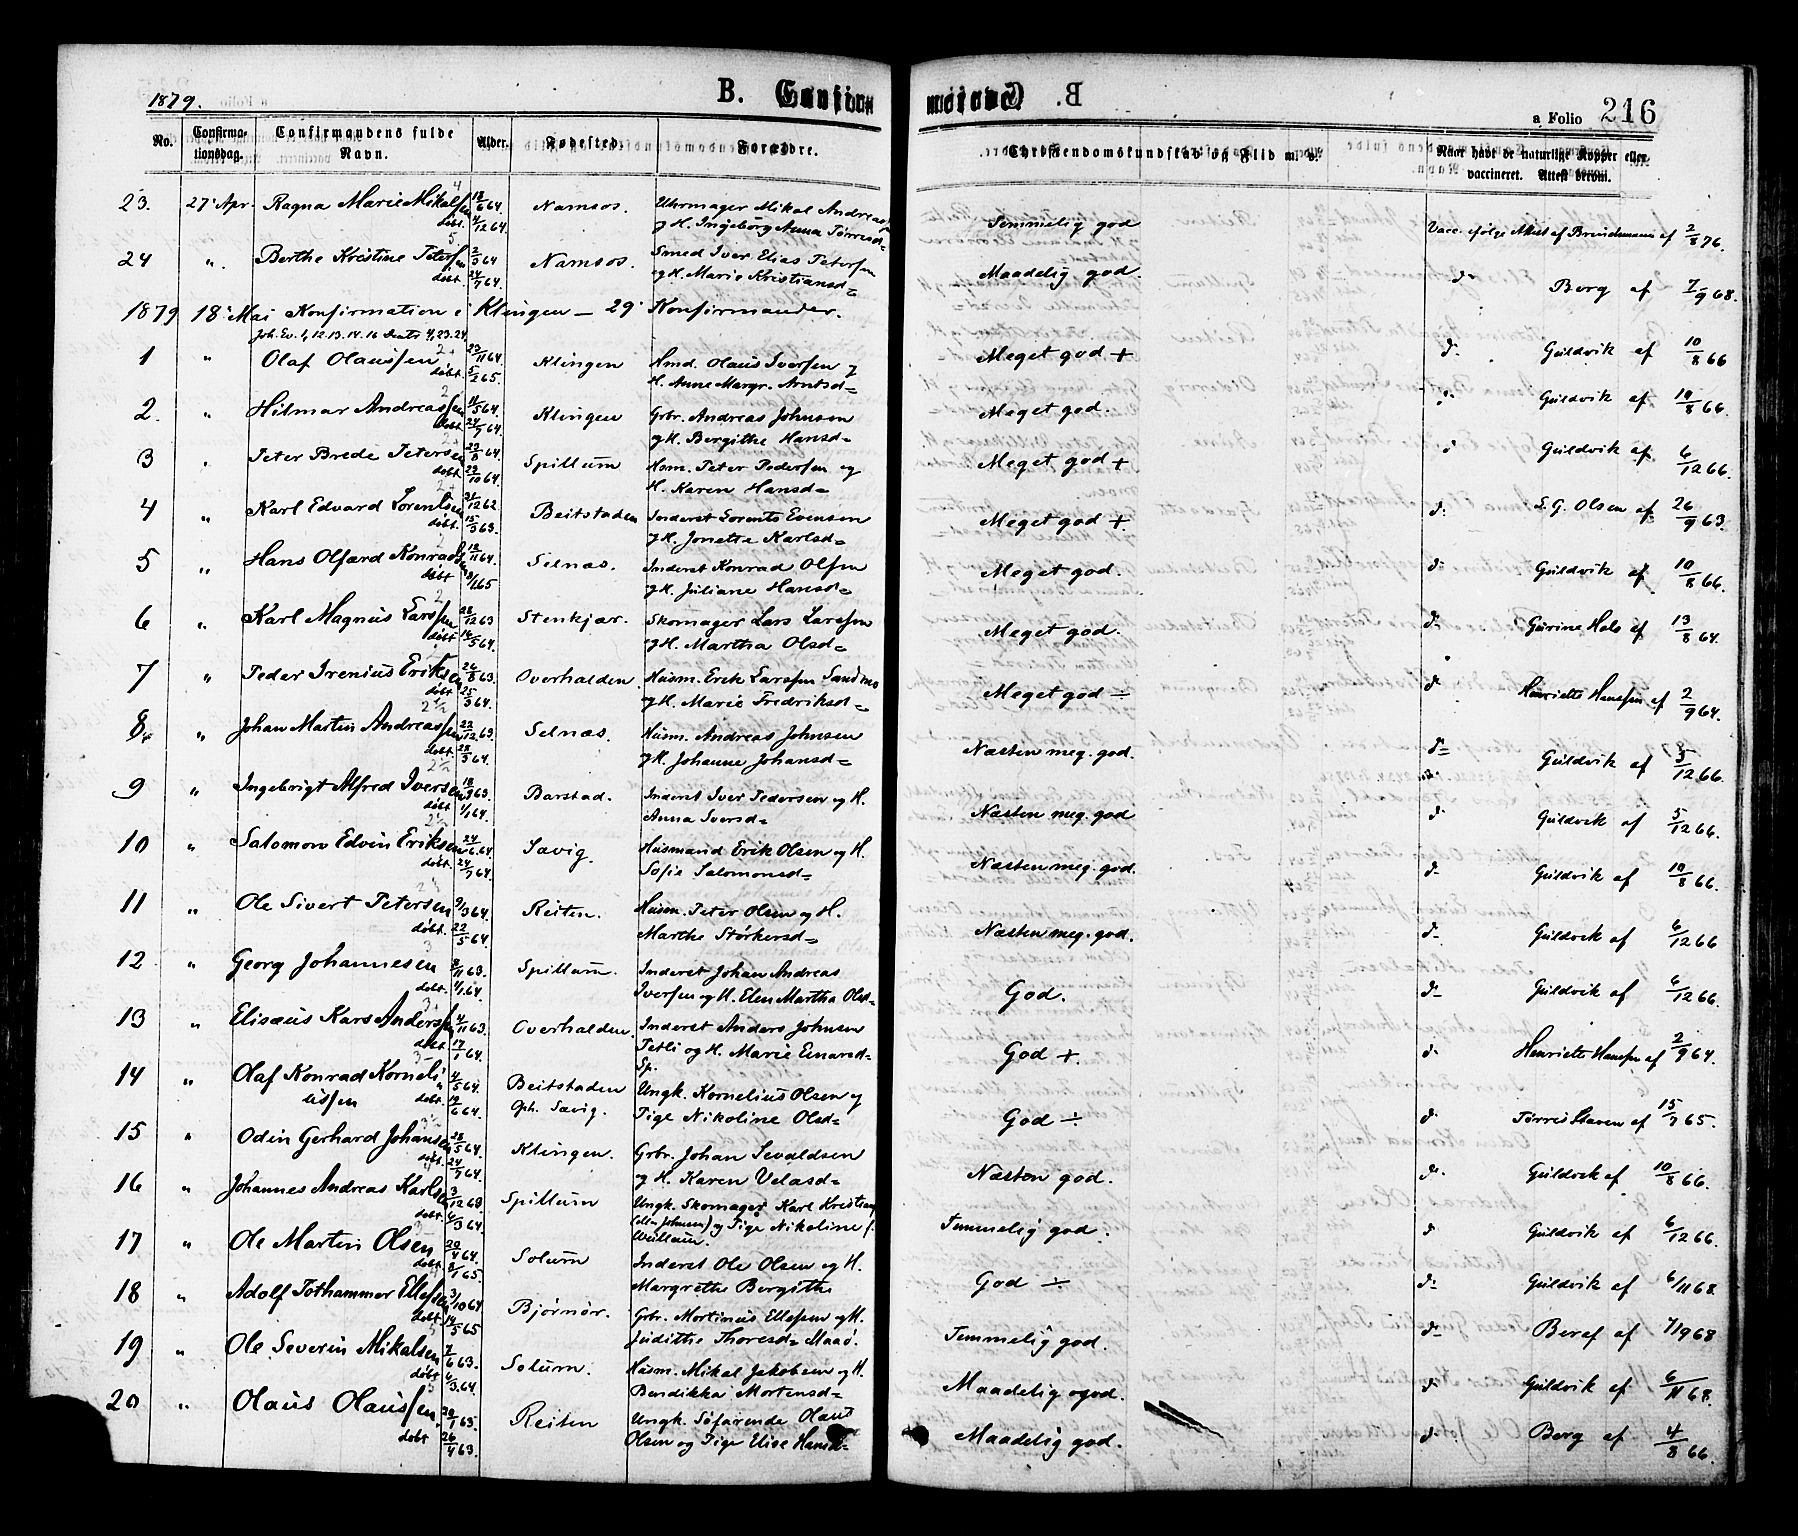 1879.
B. Confirm
a Folio 216
No.
Confirmationsdag.
Confirmandens fulde Navn.
Alder.
Fødested.
Forældre.
Christendomskundskab og Flid m. v.
Naar havt de naturlige Kopper eller vaccineret. Attest derom.
23. 27' Apr. Ragna Marie Mikalsen 13/6 64. Namsos. Uhrmager Mikal Andreas Temmelig god Vacc. ifølge Attest af af 2/8 76.
døbt. 4/12 64. og H. Ingeborg Anna Tørresd=
24 ". Berthe Kristine Petersen 2/3 64 Namsos. Smed Iver Elias Petersen Maadelig god. d= Borg af 7/9 68.
døbt. 24/7 64. og H. Marie Kristiansd=
1879 18' Mai Konfirmation i Klingen – 29' Konfirmander.
Joh. Ev. 1, 12. 13. 14. 16
1 " Olaf Olaussen 23/11 64. Klingen Hmd. Olaus Iversen og Meget god + d= Guldvik af 10/8 66
døbt. 5/2 65. H. Anne Margr. Arntsd=
2. " Hilmar Andreassen 11/5 64. Klingen Grbr. Andreas Johnsen Meget god. d= Guldvik af 10/8 66.
døbt 24/7 64. og H. Bergithe Hansd=
3 " Peter Brede Petersen 22/8 64. Spillum Hsm. Peter Pedersen og Meget god + d Guldvik af 6/12 66.
døbt 23/10 64. H. Karen Hansd=
4 " Karl Edvard Lorentsen 31/12 62 Beitstaden Inderst Lorents Evensen Meget god + d= L. G. Olsen af 26/9 63.
døbt. 15/3 63. og H. Jonetta Karlsd=
5 " Hans Olfard Konrads 12/11 64. Selnæs. Inderst Konrad Olsen Meget god. d= Guldvik af 10/8 66.
døbt 65 og H. Juliane Hansd=
6 " Karl Magnus Larssen 28/12 63 Stenkjær. Skomager Lars Larssen Meget god. d= Gurine Hals af 13/8 64.
døbt 14/5 64. og H. Martha Olsd=
7 " Peder Irenius Eriksen 26/8 63. Overhalden. Husm. Erik Larssen Sandmo Meget god ÷ d= Henriette Hanssen af 2/9 64.
døbt 25/3 64. og H. Marie Fredriksd=
8. " Johan Martin Andreassen 22/12 63. Selnæs. Husm. Andreas Johnsen Næsten meg. god. d= Guldvik af 5/12 66.
døbt. 28/3 64. og H. Johanne Johansd=
9 " Ingebrigt Alfred Iversen 18/9 63. Barstad. Inderst Iver Pedersen og H. Næsten meg. god d= Guldvik af 5/12 66.
døbt 1/1 64. Anna Iversd=
10 " Salomon Edvin Eriksen 24/6 64. Savig. Husmand Erik Olsen og H. Næsten meg. god. d= Guldvik af 10/8 66.
døbt. 24/7 64. Sofie Salomonsd=
11 " Ole Sivert Petersen 9/3 64. Reiten. Husm. Peter Olsen og H. Næsten meg. god. d= Guldvik af 6/12 66
døbt. 22/5 64. Marthe Størkersd=
12 " Georg Johannesen 8/11 63. Spillum. Inderst Johan Andreas God. d= Guldvik af 6/12 66.
døbt. 1/1 64. Iversen og H. Elen Martha Olsd=
13 " Elisæus Kars Anderssen 4/11 63. Overhalden. Inderst Anders Johnsen God + d= Henriette Hanssen af 2/9 64.
døbt 17/1 64. Petli og H. Marie Einarsd=
Sp.
14 " Olaf Konrad Korneli 4/5 64. Beitstaden Ungk. Kornelius Olsen og God ÷ d Tørres Staven af 15/7 65.
ussen døbt. 19/6 64. Oph. Sævig. Pige Nikoline Olsd=
15 " Odin Gerhard Johansen 28/5 64. Klingen. Grbr. Johan Sevaldsen Næsten god. d= Guldvik af 10/8 66.
døbt. 24/7 64. og H. Karen Velasd=
16 " Johannes Andreas Karlsen 3/12 63 Spillum Ungk. Skomager Karl Kristian Temmelig god. d Guldvik af 6/12 66.
døbt. 4/3 64. Johnsen) og Pige Nikoline
17 " Ole Martin Olsen 20/4 64. Solum Inderst Ole Olsen og H. God ÷ d= Guldvik af 6/11 68.
døbt. 8/1 65. Margrethe Bergitte
18 " Adolf Tothammer Ellefsen 3/10 64 Bjørnør. Grbr. Mortinus Ellefsen og H. Temmelig god. d= af 7/9 68
døbt. 14/5 65 Judithe Thoresd= Maaø.
19 " Ole Severin Mikalsen 7/6 63. Solum. Husm. Mikal Jakobsen og H. Maadelig god. d= Guldvik af 6/11 68.
døbt. 6/3 64. Bendikka Mortensd=
20 " Olaus Olaussen 20/1 63. Reiten Ungk. Søfarende Olaus Maadelig god. d= Berg af 4/8 66.
døbt 26/4 63. Olsen og Pige Elise Hansd=